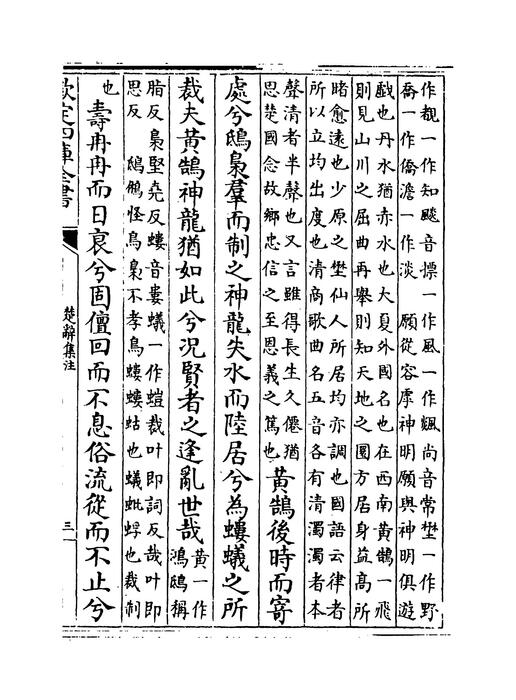 作覩一作知䬙音摽一作風一作飄尚音常埜一作野
喬一作僑澹一作淡　願從容虖神明願與神明俱遊
戱也丹水猶赤水也大夏外國名也在西南黄鵠一飛
則見山川之屈曲再舉則知天地之圜方居身益高所
睹愈遠也少原之埜仙人所居均亦調也國語云律者
所以立均出度也清商歌曲名五音各有清濁濁者本
聲清者半聲也又言雖得長生久僊猶
思楚國念故鄉忠信之至恩義之篤也
黄鵠後時而寄
處兮鴟梟羣而制之神龍失水而陸居兮為螻蟻之所
裁夫黄鵠神龍猶如此兮況賢者之逢亂世哉
黄一作
鴻鴟稱
脂反梟堅堯反螻音婁蟻一作螘裁叶即詞反哉叶即
思反　鴟鵂怪鳥梟不孝鳥螻螻蛄也蟻蚍蜉也裁制
也
壽冉冉而日衰兮固儃回而不息俗流從而不止兮
欽定四庫全書
楚辭集注
三